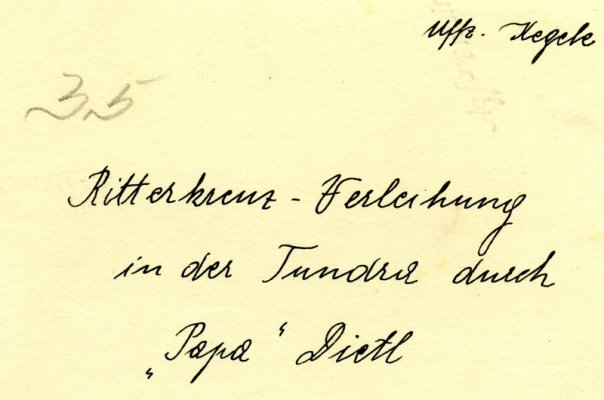 Uffz. Hegele
3,5
Ritterkreuz-Verleihung
in der Tundra durch
„Papa“ Dietl